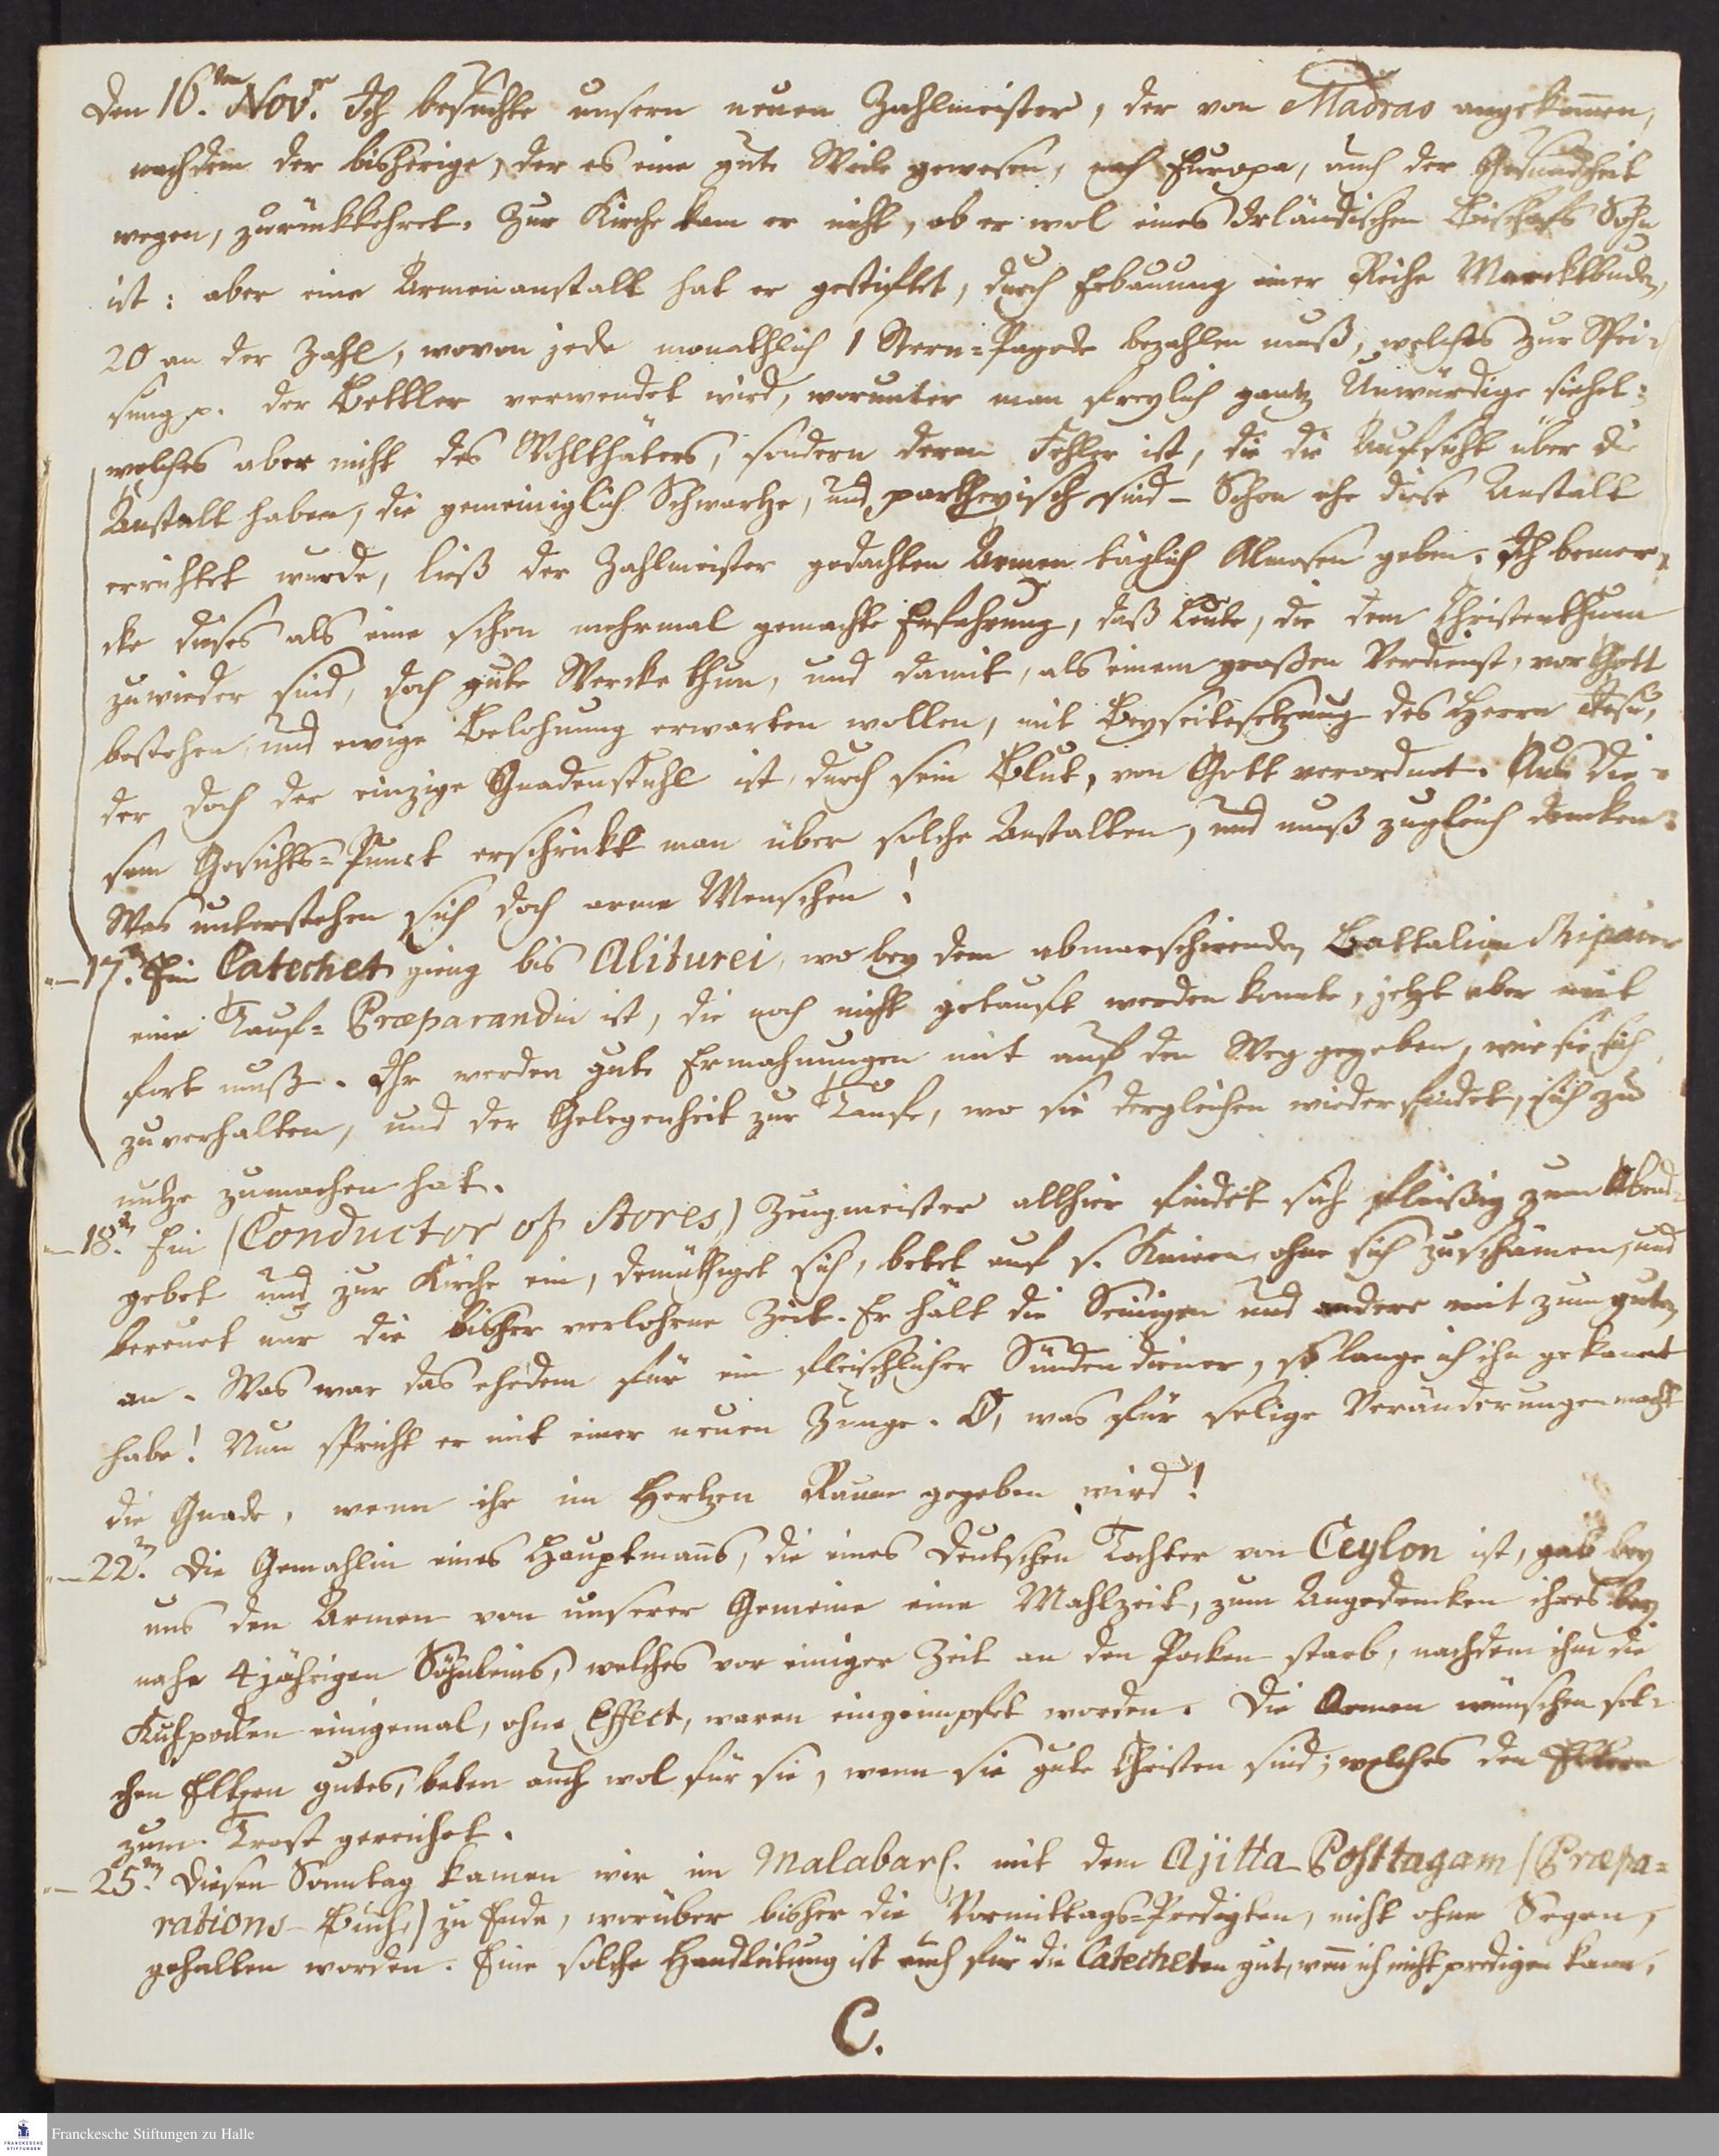 Den 16.ten Nov.r Ich besuchte unsern neuen Zahlmeister, der von Madras angekommen,
nachdem der bisherige, der es eine gute Weile gewesen, nach Europa, auch der Gesundheit
wegen, zurückkehret. Zur Kirche kam er nicht, ob er wol eines Irländischen Bischofs Sohn
ist: aber eine Armenanstalt hat er gestiftet, durch Erbauung einer Reihe Marcktbuden,
20 an der Zahl, wovon jede monathlich 1 Stern-Pagode bezahlen muß, welches zur Spei-
sung p. der Bettler verwendet wird, worunter man freylich gantz Unwürdige siehet:
welches aber nicht des Wohlthäters, sondern deren Fehler ist, die die Aufsicht über die
Anstalt haben, die gemeiniglich Schwartze, und partheyisch sind – Schon ehe diese Anstalt
errichtet wurde, ließ der Zahlmeister gedachten Armen täglich Almosen geben. Ich bemer-
cke dieses als eine schon mehrmal gemachte Erfahrung, daß Leute, die dem Christenthum
zuwieder sind, doch gute Wercke thun, und damit, als einem großen Verdienst, vor Gott
bestehen, und ewige Belohnung erwarten wollen, mit Beyseitesetzung des Herrn Jesu,
der doch der einzige Gnadenstuhl ist, durch sein Blut, von Gott verordnet. Aus die-
sem Gesichts-Punct erschrickt man über solche Anstalten, und muß zugleich dencken:
Was unterstehen sich doch arme Menschen!
"—17.n Ein Catechet gieng bis Aliturei, wo bey dem abmarschirenden Battalion Sipaier
eine Tauf-Præparandin ist, die noch nicht getauft werden konnte, jetzt aber mit
fort muß. Ihr werden gute Ermahnungen mit auf den Weg gegeben, wie sie sich
zuverhalten, und der Gelegenheit zur Taufe, wo sie dergleichen wieder findet, sich zu
nutze zumachen hat.
"—18.n Ein (Conductor of Stores) Zeugmeister allhier findet sich fleißig zum Abend-
gebet und zur Kirche ein, demüthiget sich, betet auf s. Knieen, ohne sich zuschämen, und
bereuet nur die bisher verlohrne Zeit. Er hält die Seinigen und andere mit zum guten
an. Was war das ehedem für ein fleischlicher Sünden diener, so lange ich ihn gekannt
habe! Nun spricht er mit einer neuen Zunge. O, was für selige Veränderungen macht
die Gnade, wenn ihr im Hertzen Raum gegeben wird!
"—22.n Die Gemahlin eines Hauptmanns, die eines Deutschen Tochter von Ceylon ist, gab bey
uns den Armen von unserer Gemeine eine Mahlzeit, zum Angedencken ihres bey
nahe 4 jährigen Söhnleins, welches vor einiger Zeit an den Pocken starb, nachdem ihm die
Kuhpocken einigemal, ohne Effect, waren eingeimpfet worden. Die Armen wünschen sol-
chen Eltern gutes, beten auch wol für sie, wenn sie gute Christen sind; welches den Eltern
zum Trost gereichet.
"—25.ten Diesen Sonntag kamen wir im Malabars. mit dem Ajitta-Posttagam (Præpa-
rations-Buch) zu Ende, worüber bisher die Vormittags-Predigten, nicht ohne Segen,
gehalten worden. Eine solche Handleitung ist auch für die Catecheten gut, wenn ich nicht predigen kann,
C.
Franckesche Stiftungen zu Halle